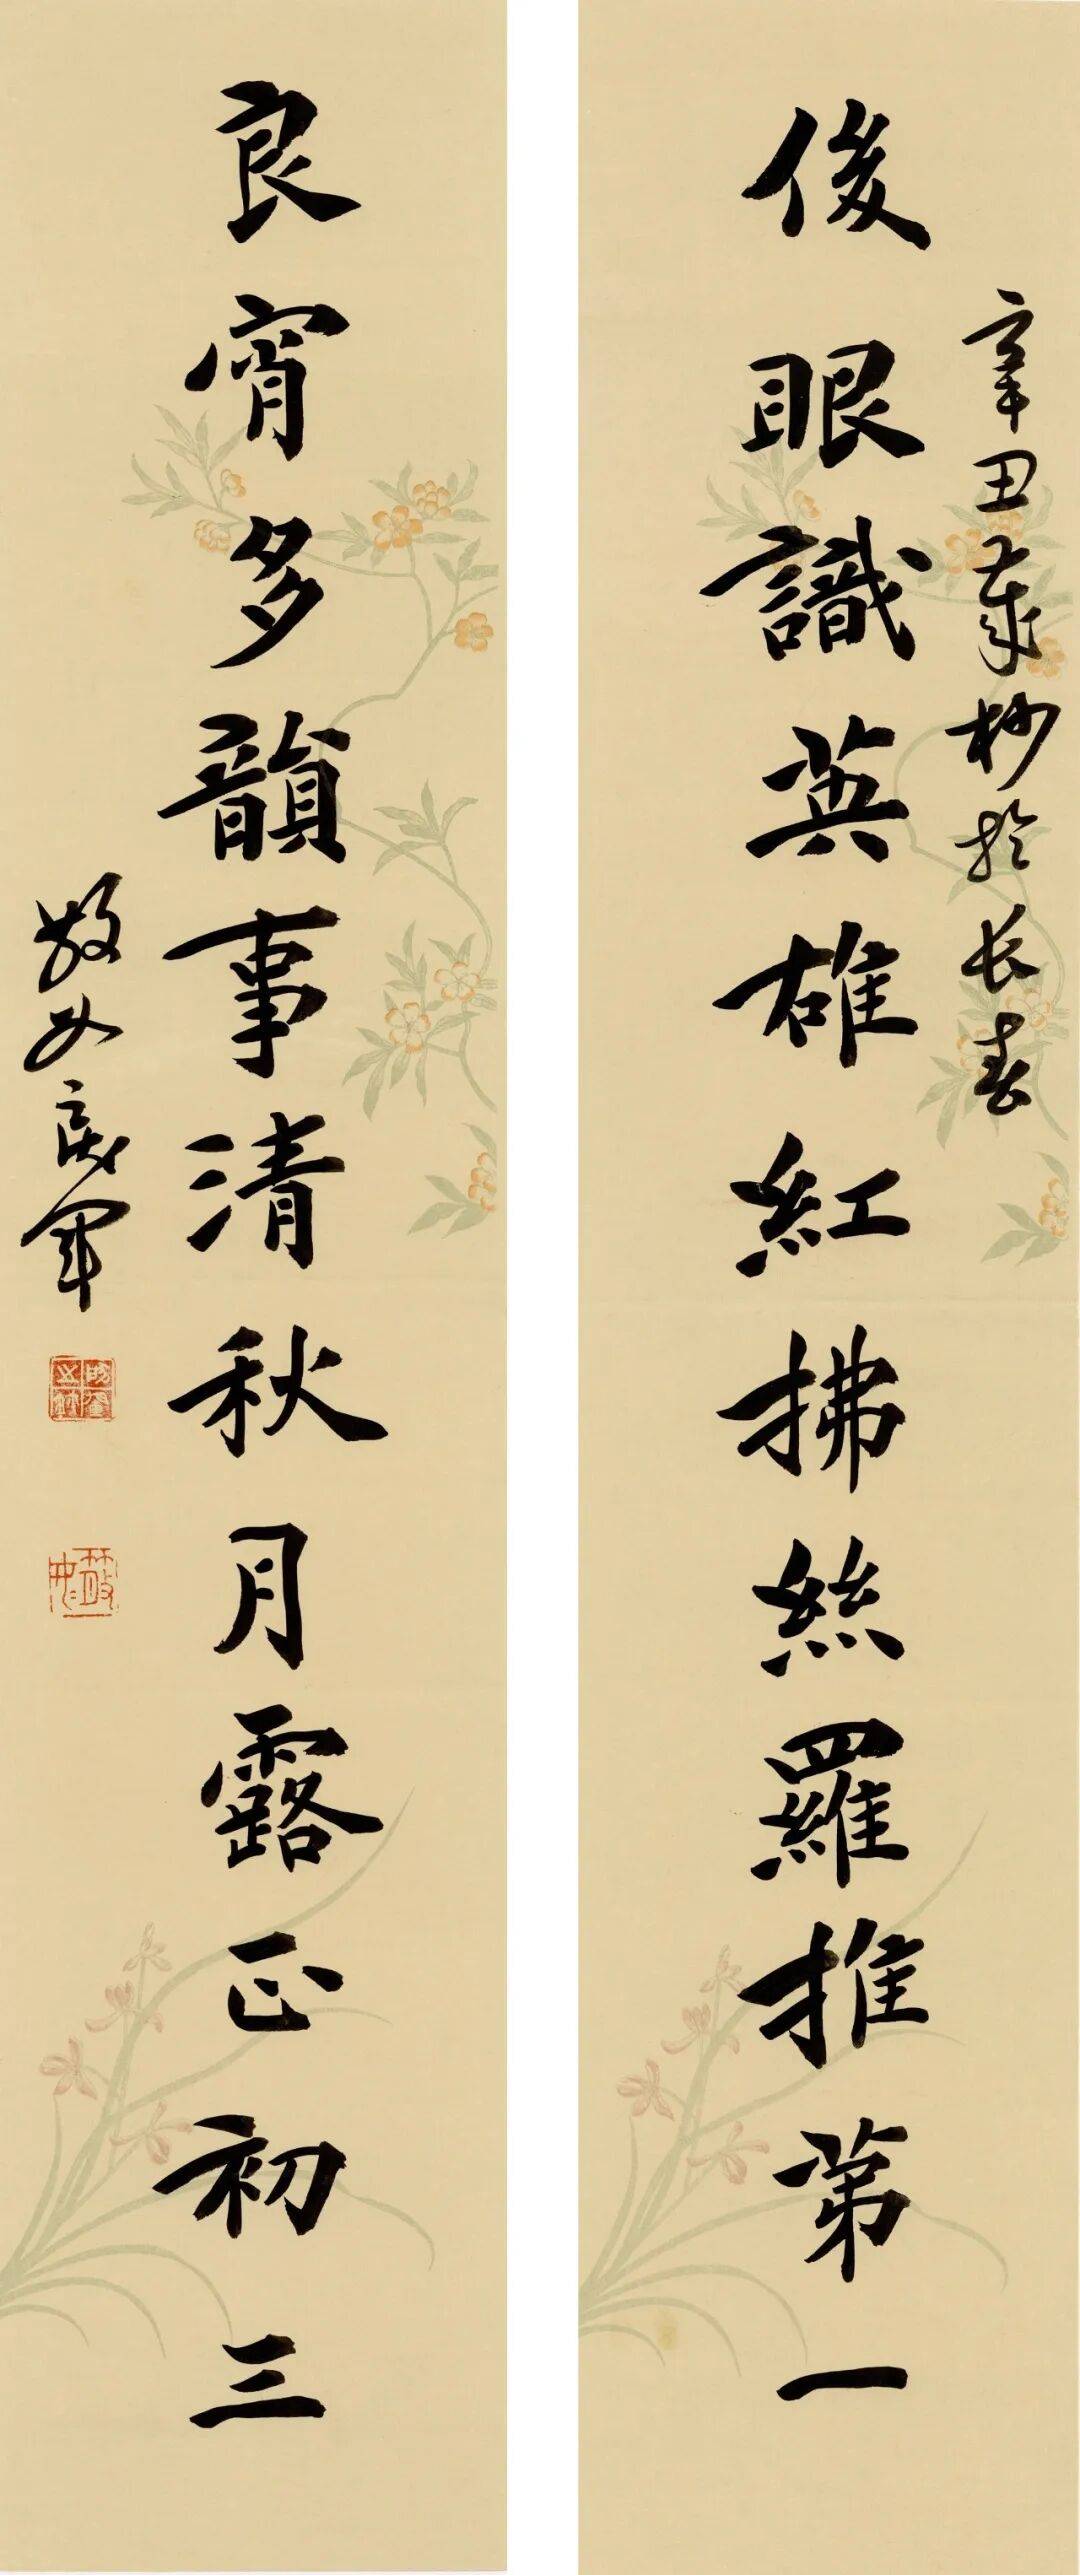 俊眼識英雄紅拂絲羅推第一
辛丑歲杪於长春
良宵多韻事清秋月露正初三